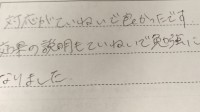 対応がていねいで良かったです
効果の説明もていねいで勉強に
なりました